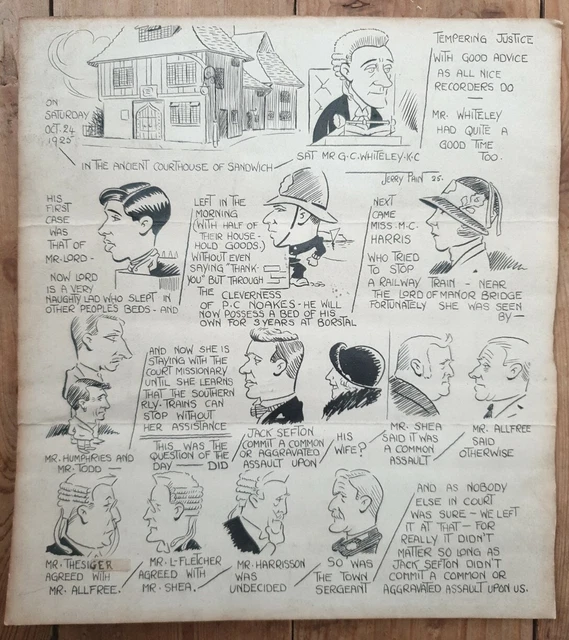 ON
SATURDAY
OCT. 24
1925
IN THE ANCIENT COURTHOUSE OF SANDWICH
SAT MR G.C. WHITELEY·K·C
TEMPERING JUSTICE
WITH GOOD ADVICE
AS ALL NICE
RECORDERS DO
—
MR. WHITELEY
HAD QUITE A
GOOD TIME
TOO.
JERRY PAIN 25.
HIS
FIRST
CASE
WAS
THAT OF
MR·LORD -
NOW LORD
IS A VERY
NAUGHTY LAD WHO SLEPT IN
OTHER PEOPLES BEDS - AND
LEFT IN THE
MORNING
(WITH HALF OF
THEIR HOUSE-
HOLD GOODS.)
WITHOUT EVEN
SAYING "THANK-
YOU" BUT THROUGH
THE CLEVERNESS
OF P.C NOAKES - HE WILL
NOW POSSESS A BED OF HIS
OWN FOR 3 YEARS AT BORSTAL
NEXT
CAME
MISS·M·C·
HARRIS
WHO TRIED
TO STOP
A RAILWAY TRAIN - NEAR
THE LORD OF MANOR BRIDGE
FORTUNATELY SHE WAS SEEN
BY —
MR. HUMPHRIES AND
MR·TODD —
AND NOW SHE IS
STAYING WITH THE
COURT MISSIONARY
UNTIL SHE LEARNS
THAT THE SOUTHERN
RLY·TRAINS CAN
STOP WITHOUT
HER ASSISTANCE
THIS WAS THE
QUESTION OF THE
DAY — DID
JACK SEFTON
COMMIT A COMMON
OR AGGRAVATED
ASSAULT UPON
HIS
WIFE?
MR. SHEA
SAID IT WAS
A COMMON
ASSAULT
MR. ALLFREE
SAID
OTHERWISE
MR. THESIGER
AGREED WITH
MR. ALLFREE.
MR. L·FLETCHER
AGREED WITH
MR. SHEA.
MR. HARRISSON
WAS
UNDECIDED
SO WAS
THE TOWN
SERGEANT
AND AS NOBODY
ELSE IN COURT
WAS SURE - WE LEFT
IT AT THAT - FOR
REALLY IT DIDN'T
MATTER SO LONG AS
JACK SEFTON DIDN'T
COMMIT A COMMON OR
AGGRAVATED ASSAULT UPON US.